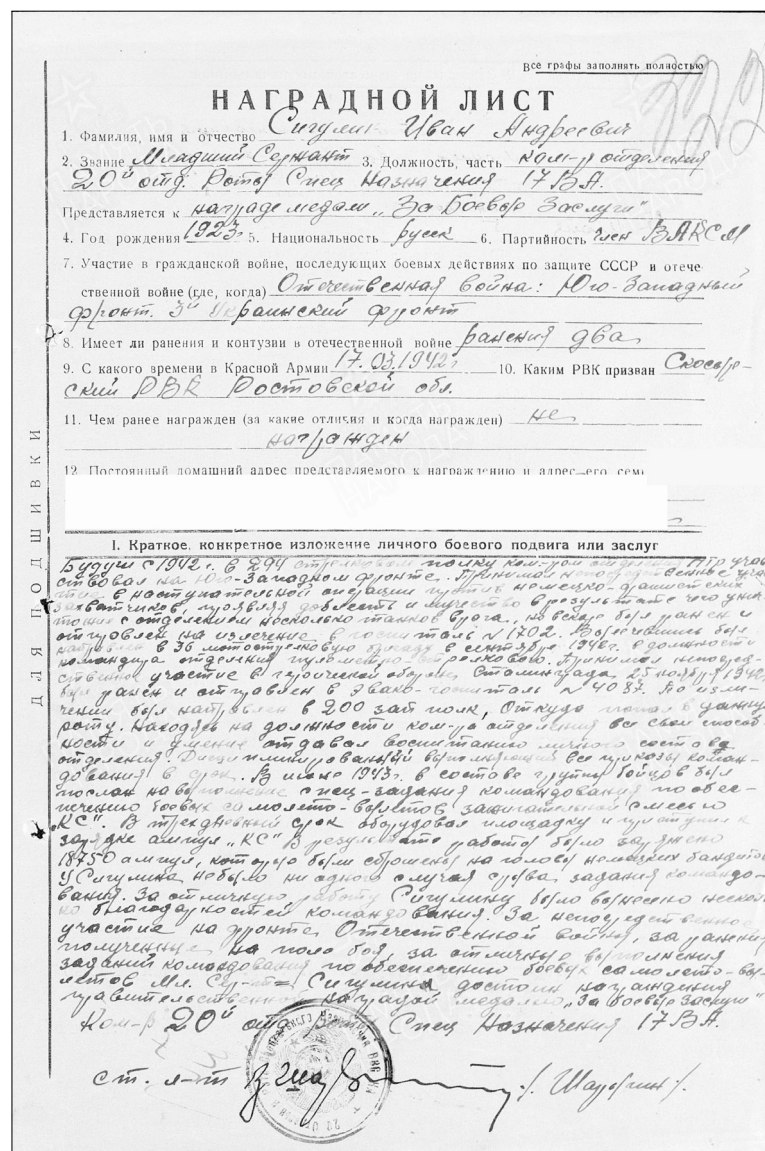 Все графы заполнять полностью
НАГРАДНОЙ ЛИСТ
1. Фамилия, имя и отчество Сигулин Иван Андреевич
2. Звание Младший Сержант 3. Должность, часть ком-р отделения
20й отд. Роты Спец Назначения 17 ВА.
Представляется к награде медали „За Боевые Заслуги"
4. Год рождения 1923г 5. Национальность русск 6. Партийность член ВЛКСМ
7. Участие в гражданской войне, последующих боевых действиях по защите СССР и отече-
ственной войне (где, когда) Отечественная война: Юго-Западный
фронт. 3й Украинский фронт
8. Имеет ли ранения и контузии в отечественной войне ранения два
9. С какого времени в Красной Армии 17.03.1942г 10. Каким РВК призван Скосыр-
ский РВК Ростовской обл.
11. Чем ранее награжден (за какие отличия и когда награжден) не
награжден
12. Постоянный домашний адрес представляемого к награждению и адрес его сем
ДЛЯ ПОДШИВКИ
I. Краткое, конкретное изложение личного боевого подвига или заслуг
Будучи с 1942г. в 294 стрелковом полку ком-ром отделения ПТР учас
ствовал на Юго-Западном фронте. Принимал непосредственное учас
тие в наступательной операции против немецко-фашистских
захватчиков, проявляя доблесть и мужество в результате чего унич
тожил с отделением несколько танков врага, но вскоре был ранен и
отправлен на излечение в госпиталь №1702. Вылечившись был
направлен в 36 мотострелковую бригаду в сентябре 1942г. в должности
командира отделения пулеметно-стрелкового. Принимал непосред-
ственное участие в героической обороне Сталинграда. 25 ноября 1942г
был ранен и отправлен в Эвако-госпиталь №4087. По изле-
чении был направлен в 200 зап полк, Откуда попал в данную
роту. Находясь на должности ком-ра отделения все свои способ-
ности и умение отдавал воспитанию личного состава
отделения. Дисциплинированный выполняющий все приказы коман-
дования в срок. В июне 1943г. в составе группы бойцов был
послан на выполнение спец-задания командования по обес-
печению боевых самолето-вылетов зажигательной смесью
„КС". В трехдневный срок оборудовал площадку и приступил к
зарядке ампул „КС" В результате работы было заряжено
18750 ампул, которые были сброшены на головы немецких бандитов
У Сигулина небыло ни одного случая срыва задания командо-
вания. За отличную работу Сигулину было вынесено несколь
ко благодарностей командования. За непосредственное
участие на фронте Отечественной войны, за ранения
полученные на поле боя, за отличные выполнения
заданий командования по обеспечению боевых самолето-вы-
летов Мл. Серж-т Сигулина достоин награждения
правительственной наградой медалью „За боевые заслуги"
Ком-р 20й отд Роты Спец Назначения 17 ВА.
ст. л-т /. Шаровин /.